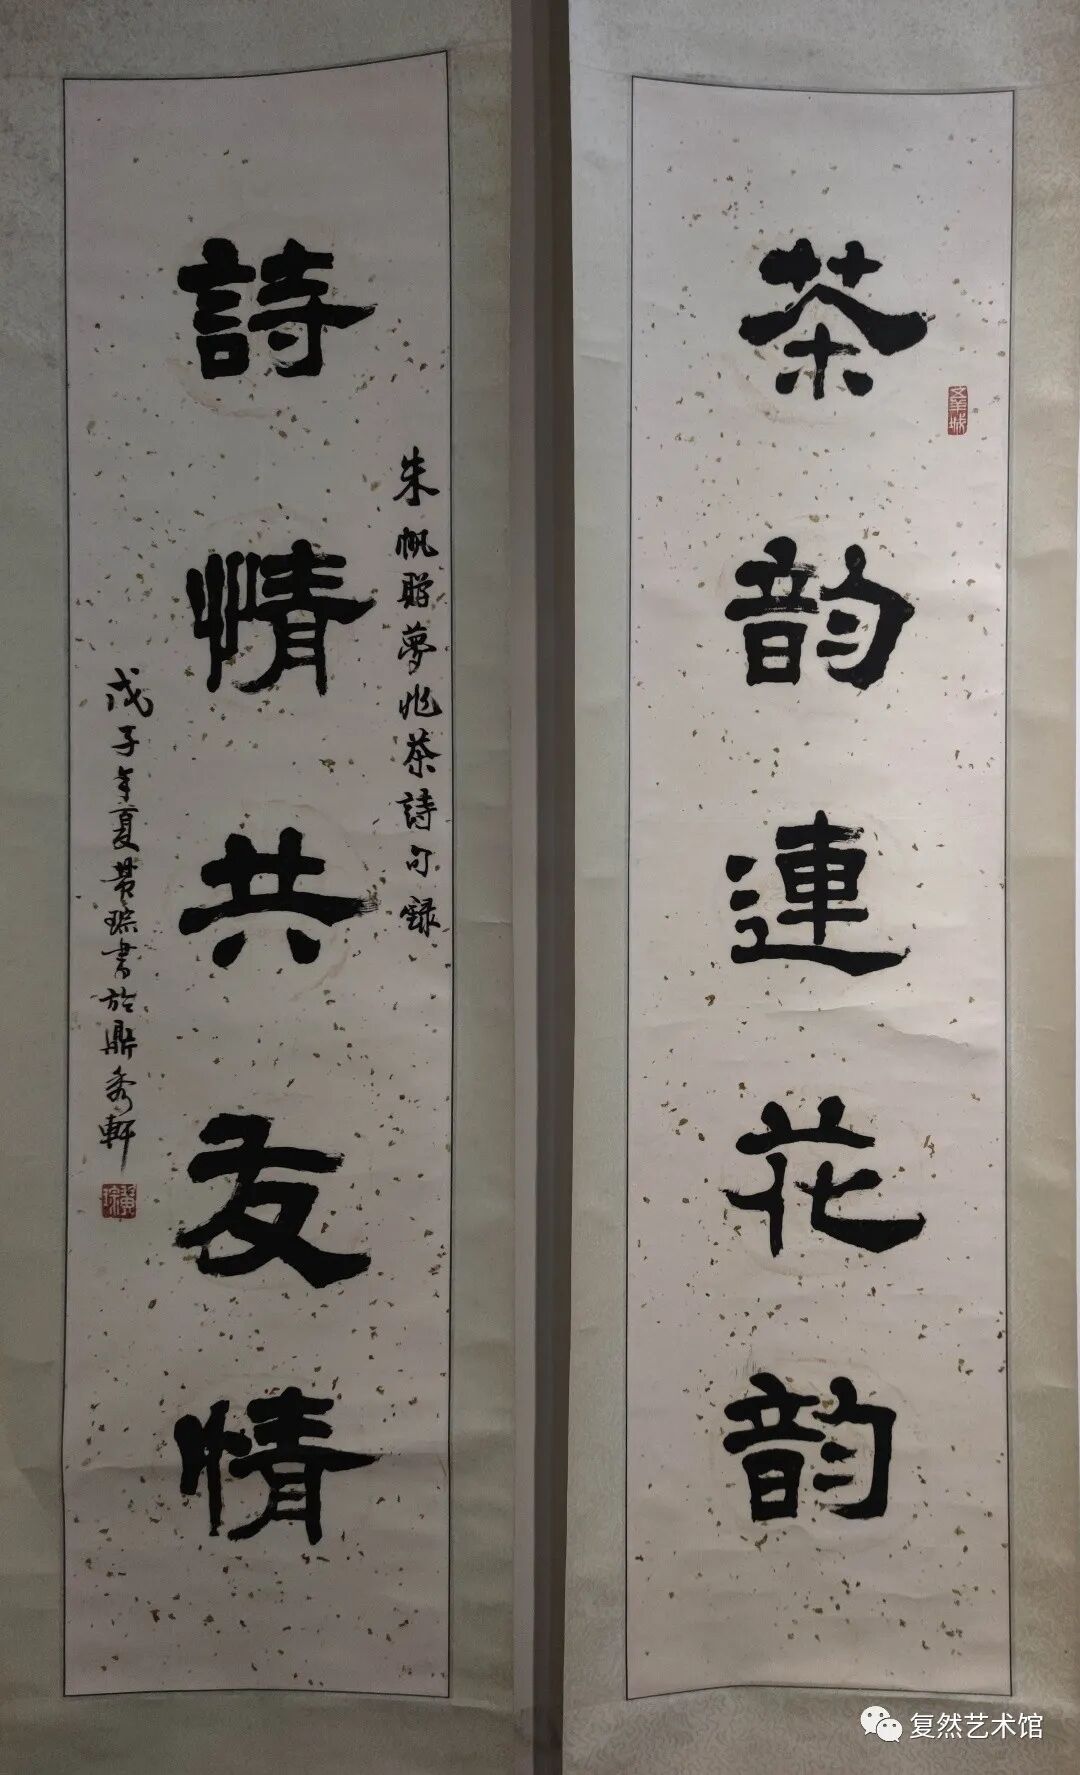 茶韵連花韵
詩情共友情
朱帆贈夢兆茶詩句錄
戊子年夏黄琮書於鼎秀軒
复然艺术馆